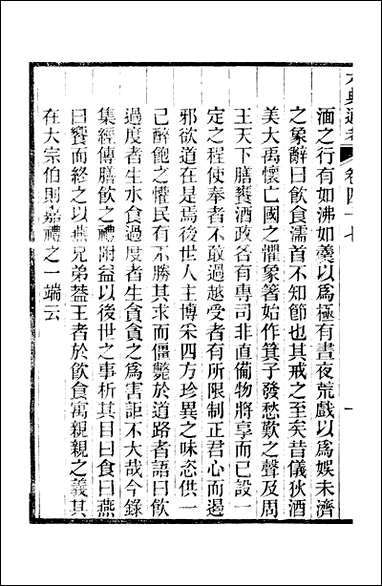 六典通考　卷四十七　一
湎之行有如沸如羹以爲極有晝夜荒戲以爲娛未濟
之象辭曰飲食濡首不知節也其戒之至矣昔儀狄酒
美大禹懷亡國之懼象箸始作箕子發愁歎之聲及周
王天下膳饔酒政各有專司非直備物將享而已設一
定之程使奉者不敢過越受者有所限制正君心而遏
邪欲道在是焉後世人主博采四方珍異之味恣供一
己醉飽之懽民有不勝其求而僵斃於道路者語曰飲
過度者生水食過度者生貪貪之爲害詎不大哉今錄
集經傳膳飲之禮附益以後世之事析其目曰食曰燕
曰饗而終之以燕兄弟葢王者於飲食寓親親之義其
在大宗伯則嘉禮之一端云